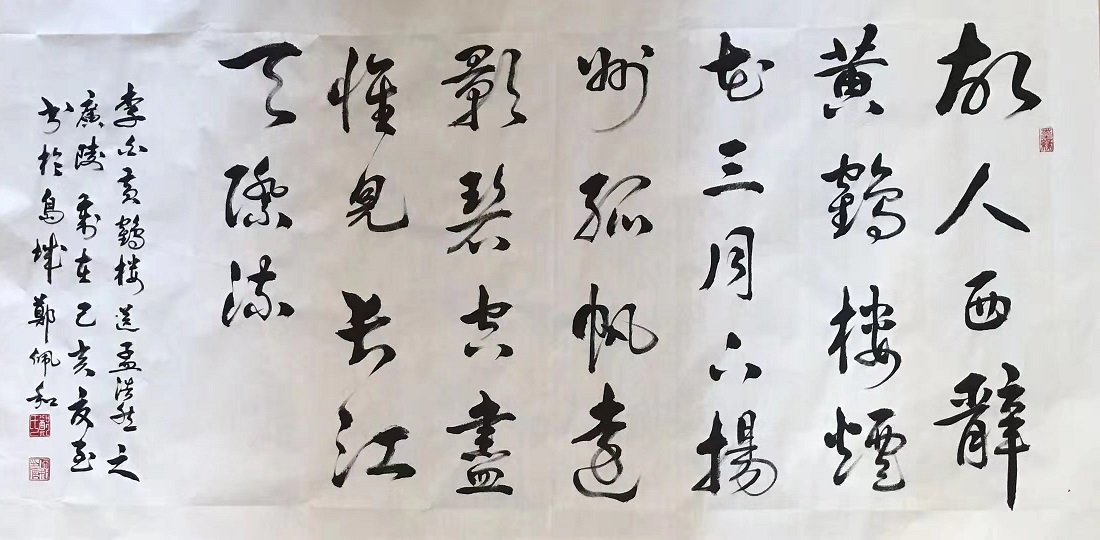 故人西辭
黄鶴樓煙
花三月下揚
州孤帆遠
影碧空盡
惟見長江
天際流
李白黄鶴樓送孟浩然之
廣陵歲在己亥夏至
书於島城鄭佩和